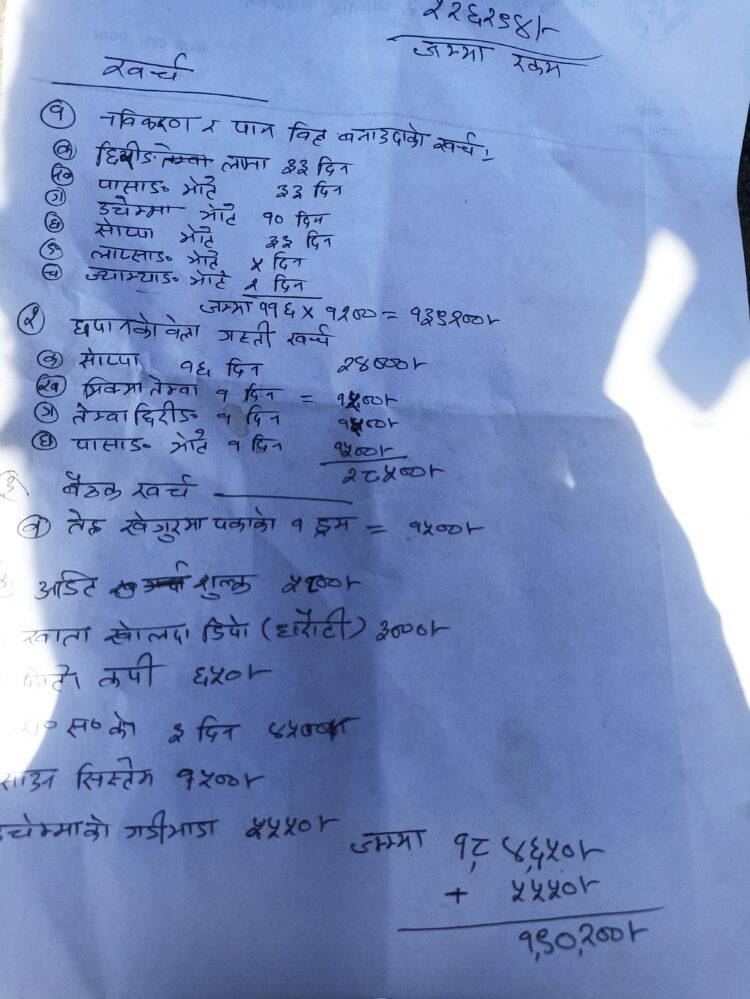 २२६२९४।-
जम्मा रकम
खर्च
१ नविकरण र पास विट बनाउदाको खर्च।
क छिरीङ तेम्वा लामा ३३ दिन
ख पासाङ भोटे ३३ दिन
ग डचेम्मा भोटे १० दिन
घ सोप्पा भोटे ३३ दिन
ङ ल्हाप्साङ भोटे ५ दिन
च ज्याम्याङ भोटे २ दिन
जम्मा ११६ × १२०० = १३९२००।-
२ छपानको वेला गस्ती खर्च
क सोप्पा १६ दिन २४०००।-
ख भिक्मा तेम्वा १ दिन = १५००।-
ग तेम्वा छिरीङ १ दिन १५००।-
घ पासाङ भोटे १ दिन १५००।-
२८५००।-
३ बैठक खर्च
क तेह्र खेगुरमा पकाको १ ड्रम = १५००।-
अडिट शुल्क
खाता खोल्दा डिपो (धरौटी) ३०००।-
फोटो कपी ६५०।-
स० को ३ दिन ४५००।-
साउन सिस्टेम १५००।-
डचेम्माको गाडीभाडा ५५५०।-
जम्मा १८,४,६५०।-
+ ५५५०।-
१,९०,२००।-